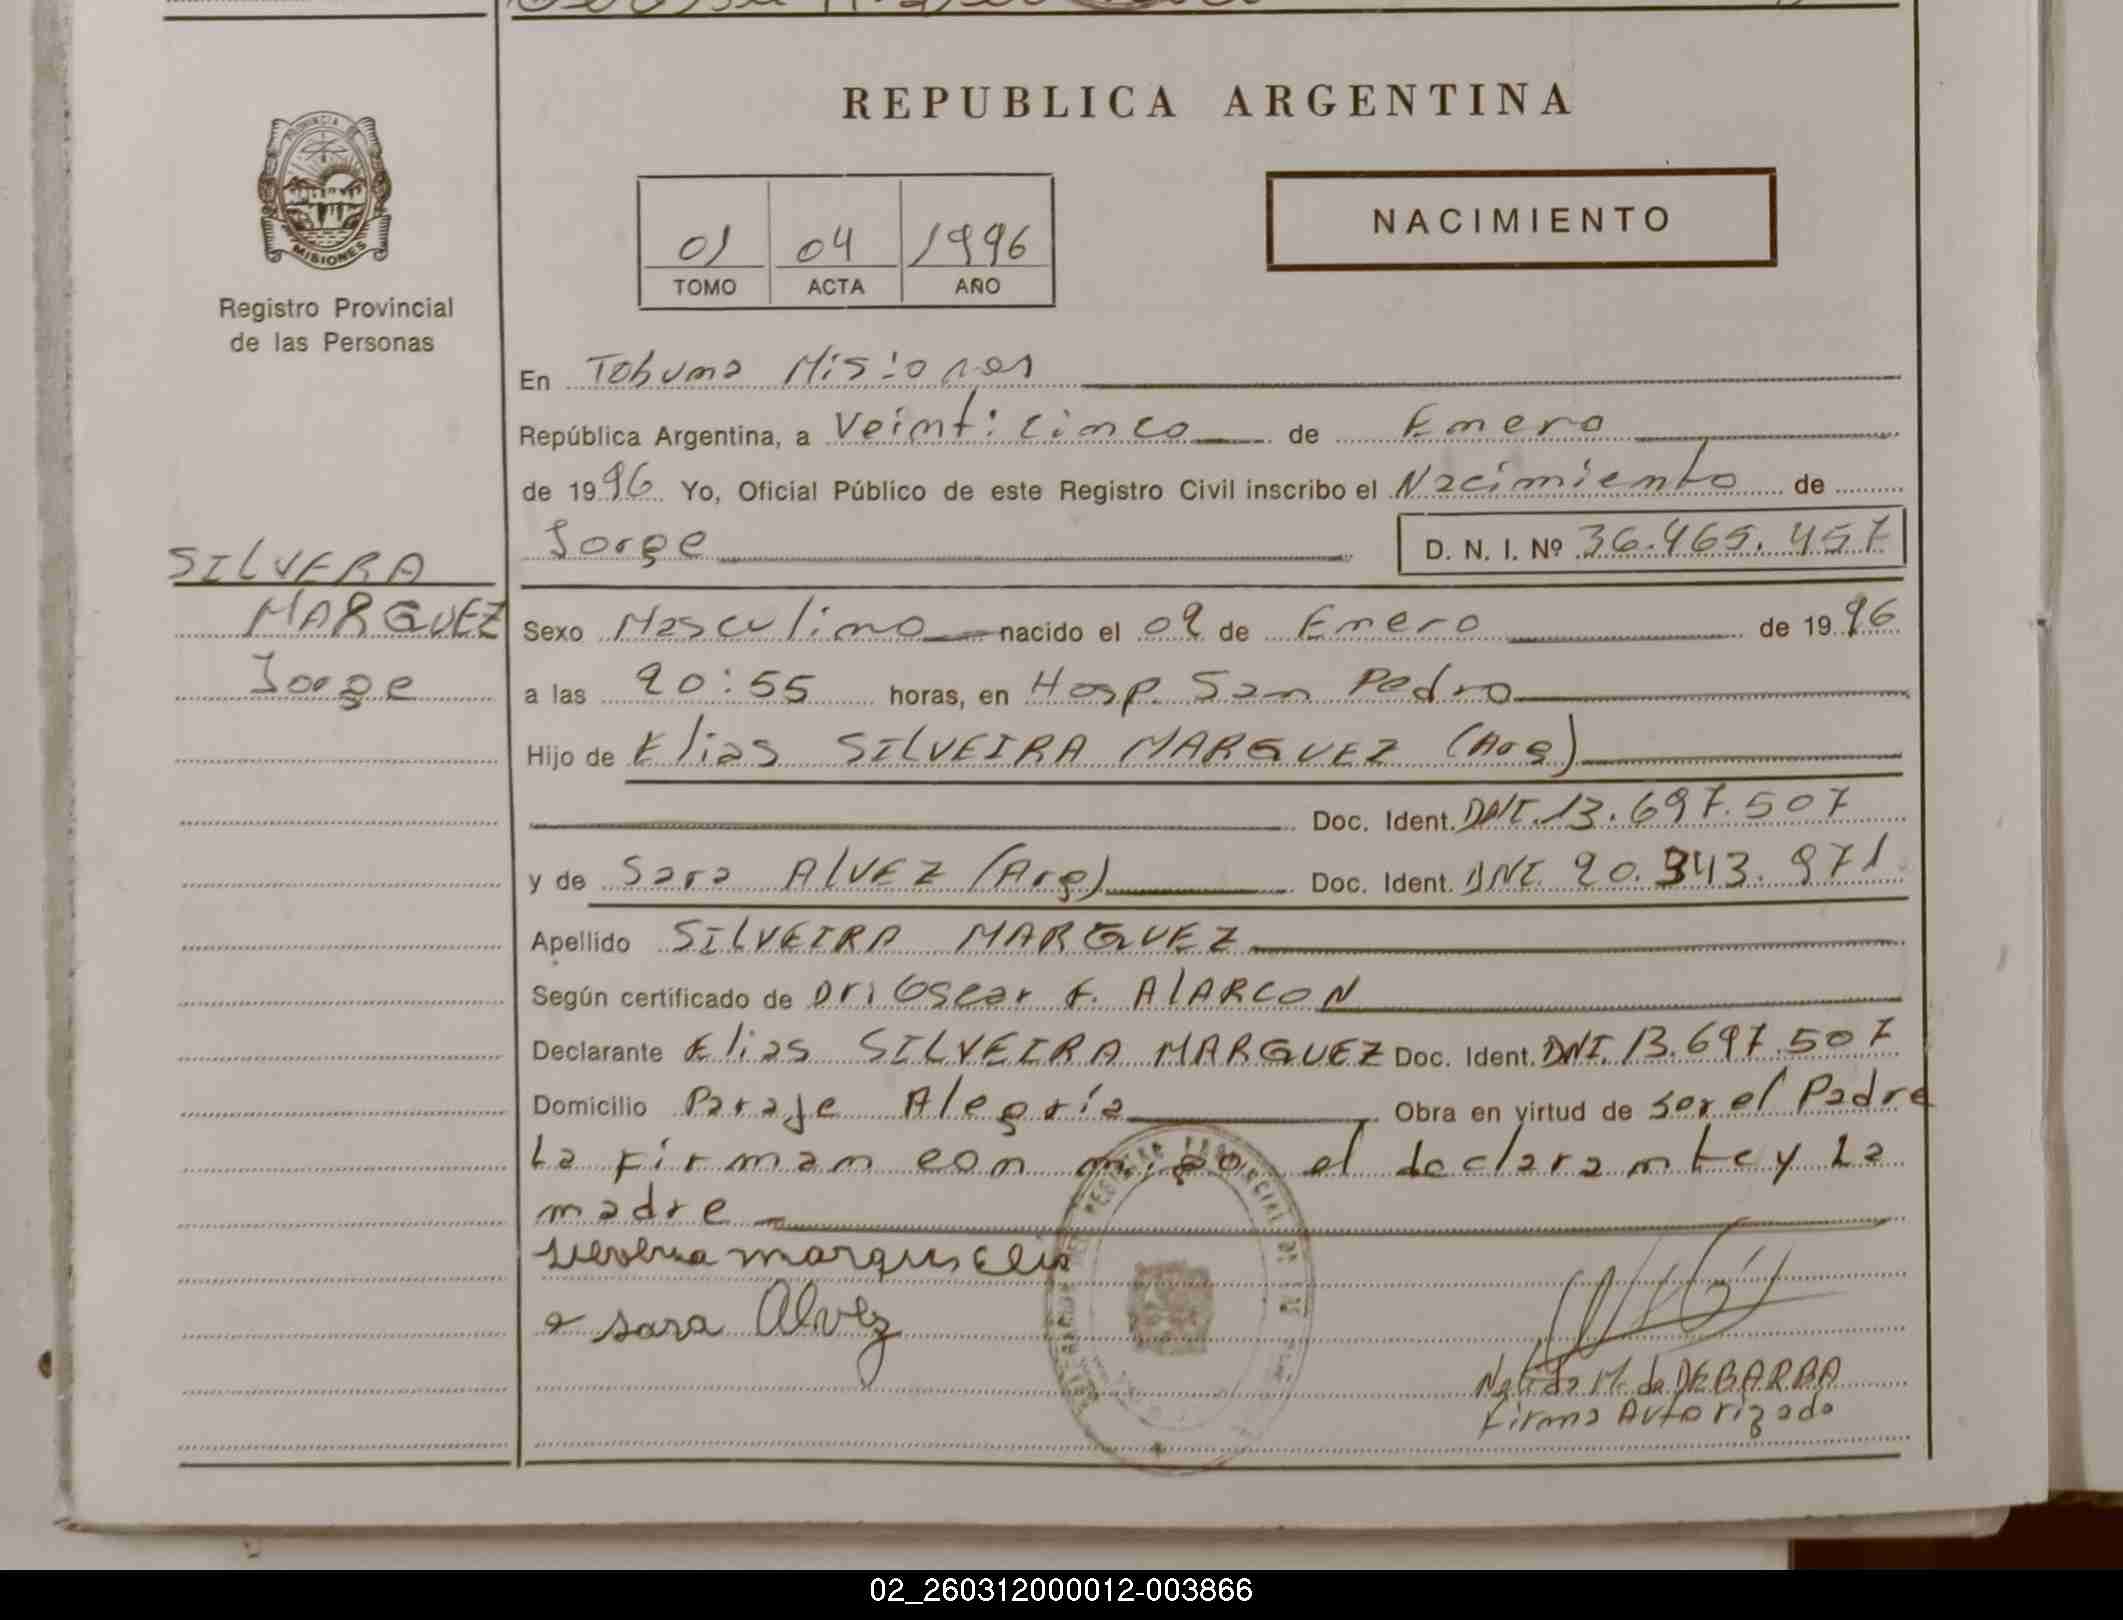 REPUBLICA ARGENTINA
PROVINCIA DE
MISIONES
Registro Provincial
de las Personas
01 04 1996
TOMO ACTA AÑO
NACIMIENTO
En Tobuna Misiones
República Argentina, a Veinticinco de Enero
de 1996 Yo, Oficial Público de este Registro Civil inscribo el Nacimiento de
Jorge D. N. I. Nº 36.465.457
SILVERA
MARQUEZ
Jorge
Sexo Masculino nacido el 09 de Enero de 1996
a las 20:55 horas, en Hosp. San Pedro
Hijo de Elias SILVEIRA MARQUEZ (Arg)
Doc. Ident. DNI. 13.697.507
y de Sara ALVEZ (Arg) Doc. Ident. DNI. 20.343.971
Apellido SILVEIRA MARQUEZ
Según certificado de Dr: Oscar F. ALARCON
Declarante Elias SILVEIRA MARQUEZ Doc. Ident. DNI. 13.697.507
Domicilio Paraje Alegría Obra en virtud de ser el Padre
La firman con migo, el declarante y La
madre
sara Alvez
M. de DEBARBA
Firma Autorizada
02_260312000012-003866